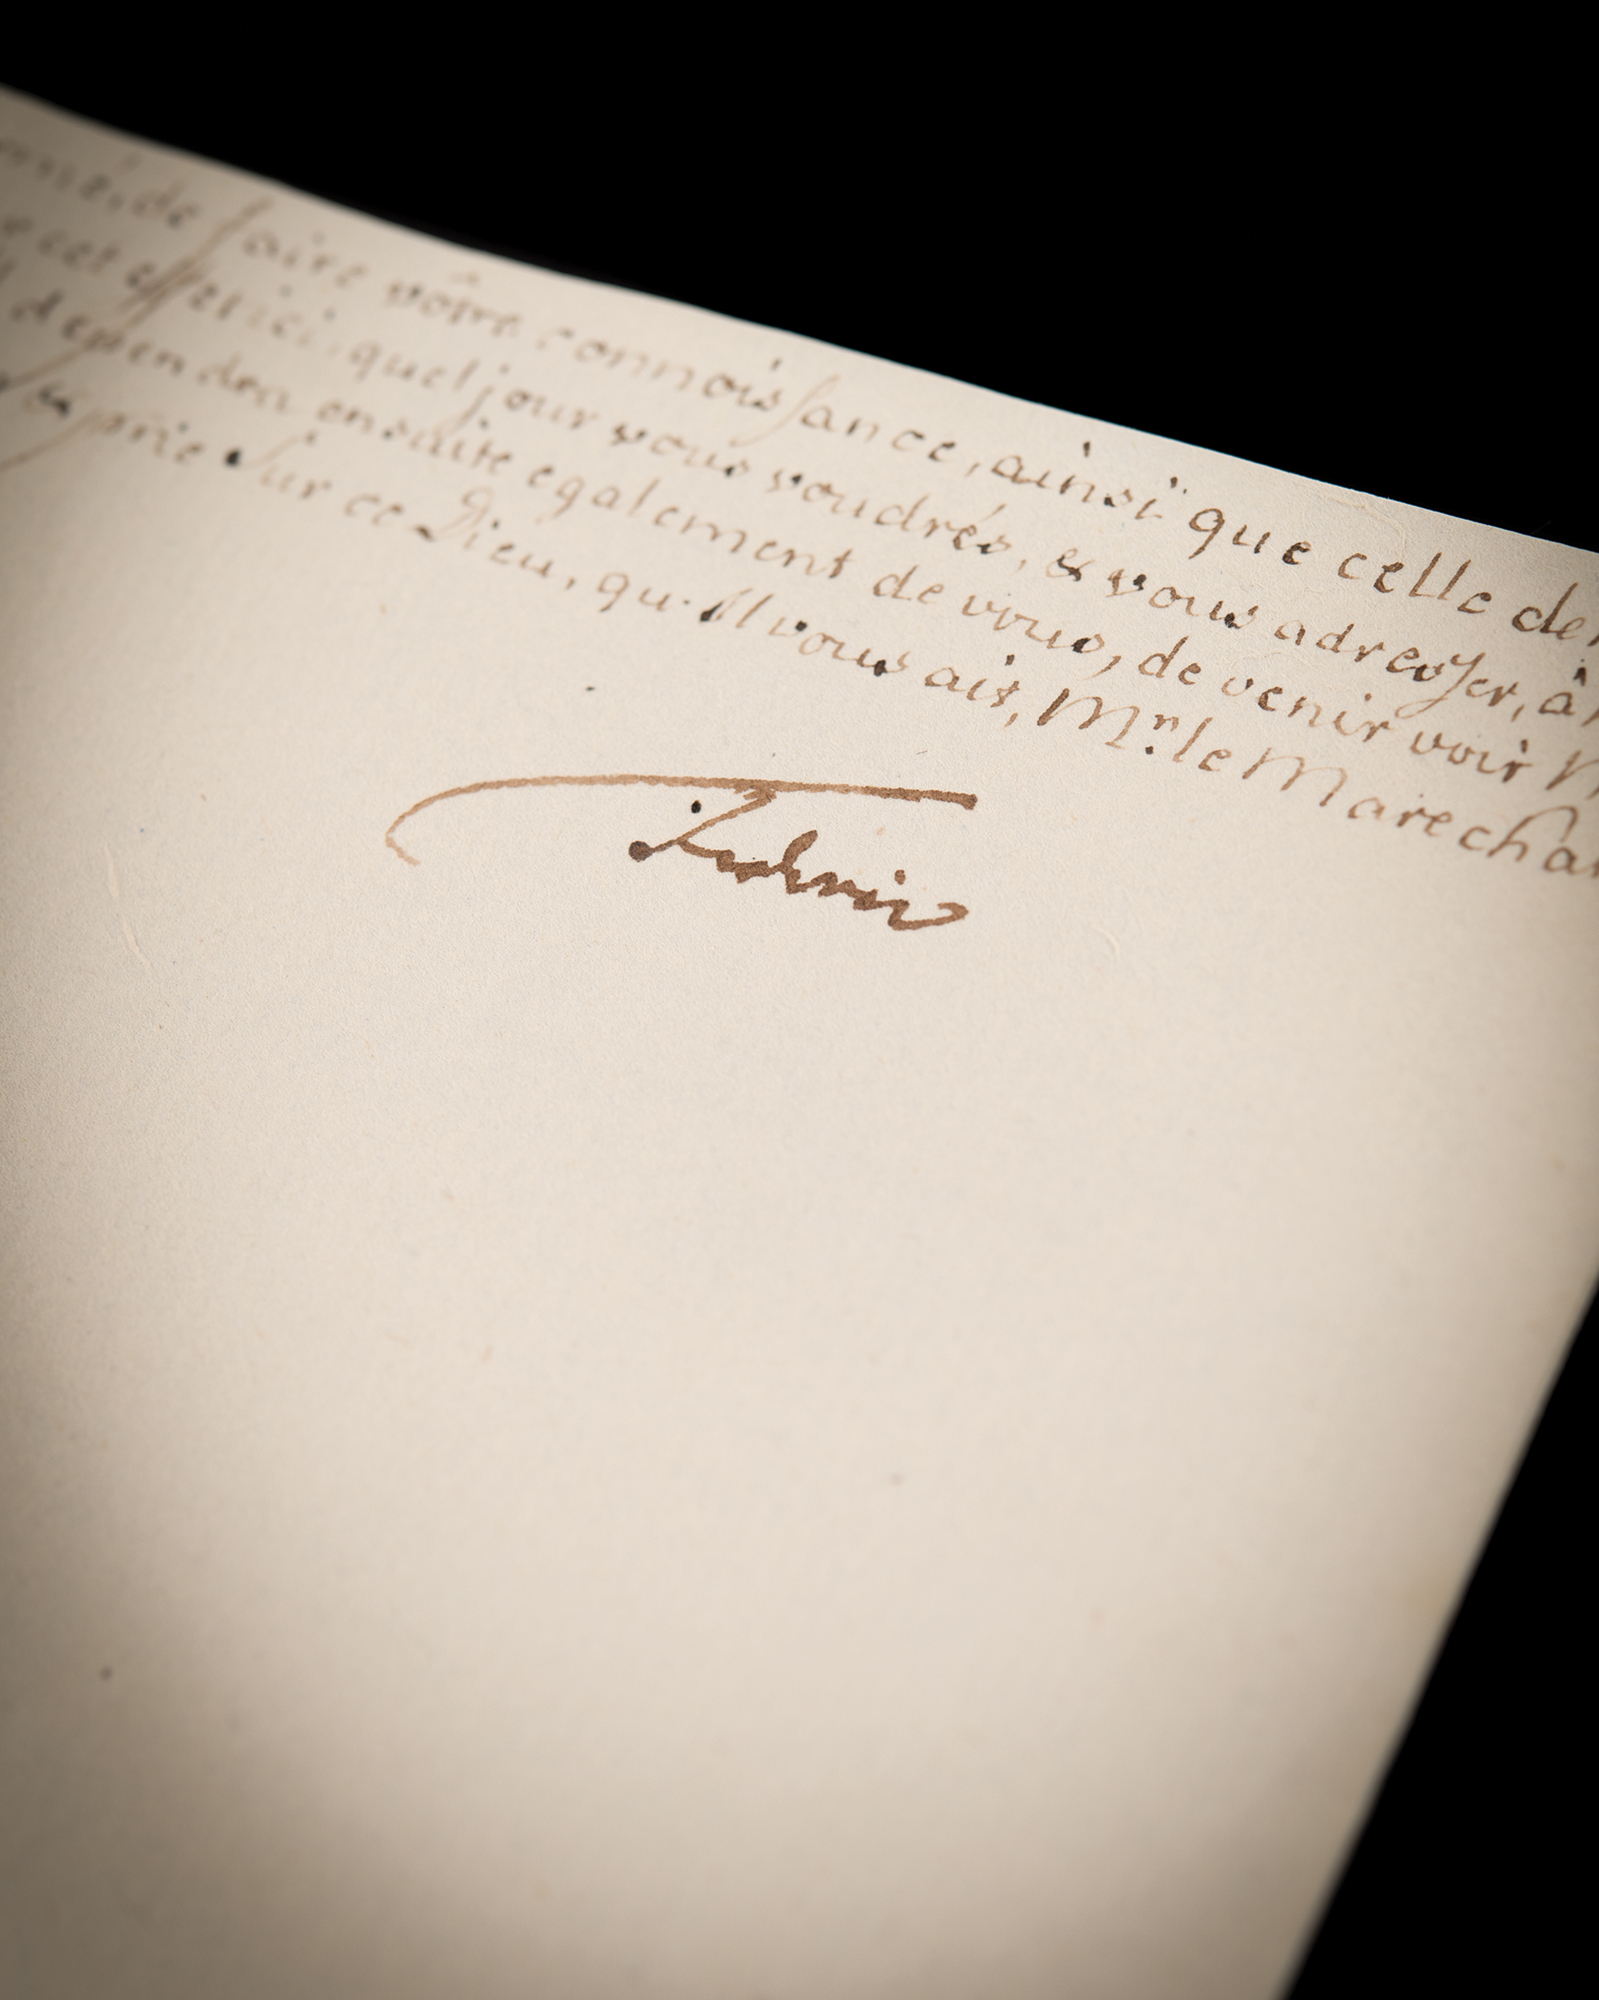 de faire vôtre connoissance, ainsi que celle de
cet effet ici, quel jour vous voudrés, & vous adresser, à
dependra ensuite egalement de vous, de venir voir
prie sur ce Dieu, qu'Il vous ait, Mr. le Marechal
Federic